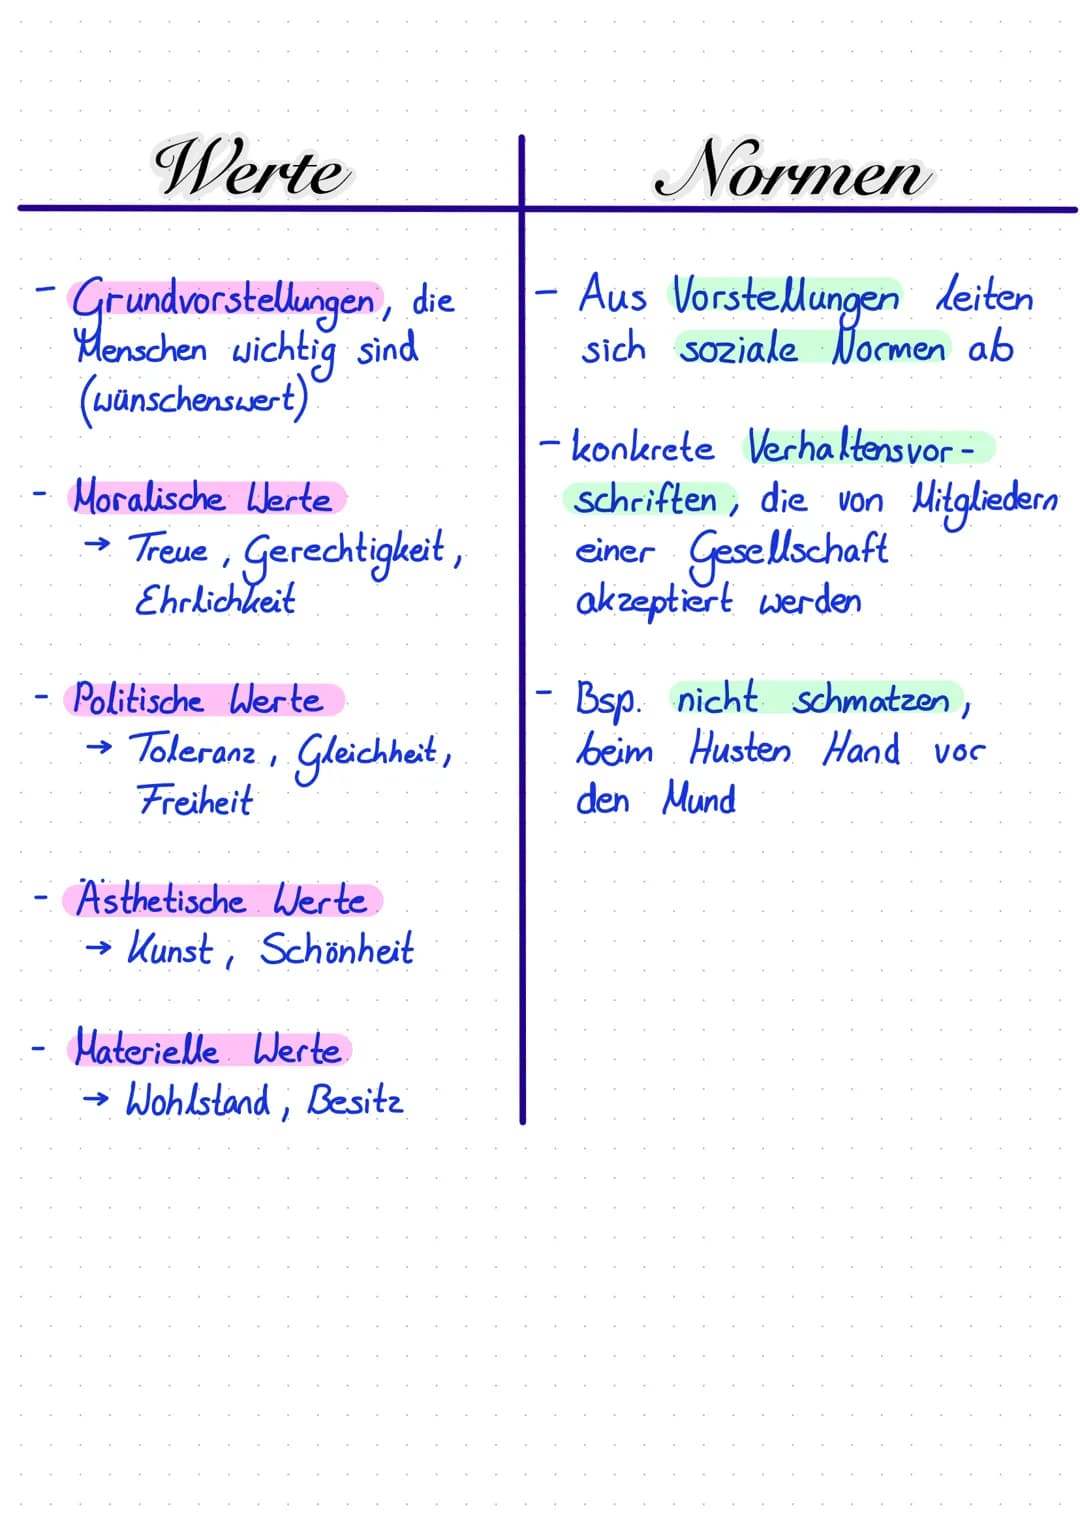 Werte
- Grundvorstellungen, die
Menschen wichtig sind
(wünschenswert)
- Moralische Werte
→ Treue, Gerechtigkeit,
Ehrlichkeit
- Politische Werte
→ Toleranz, Gleichheit,
Freiheit
- Ästhetische Werte
→ Kunst, Schönheit
- Materielle Werte
→ Wohlstand, Besitz
Normen
- Aus Vorstellungen leiten
sich soziale Normen ab
- konkrete Verhaltensvor-
schriften, die von Mitgliedern
einer Gesellschaft
akzeptiert werden
- Bsp. nicht schmatzen,
beim Husten Hand vor
den Mund